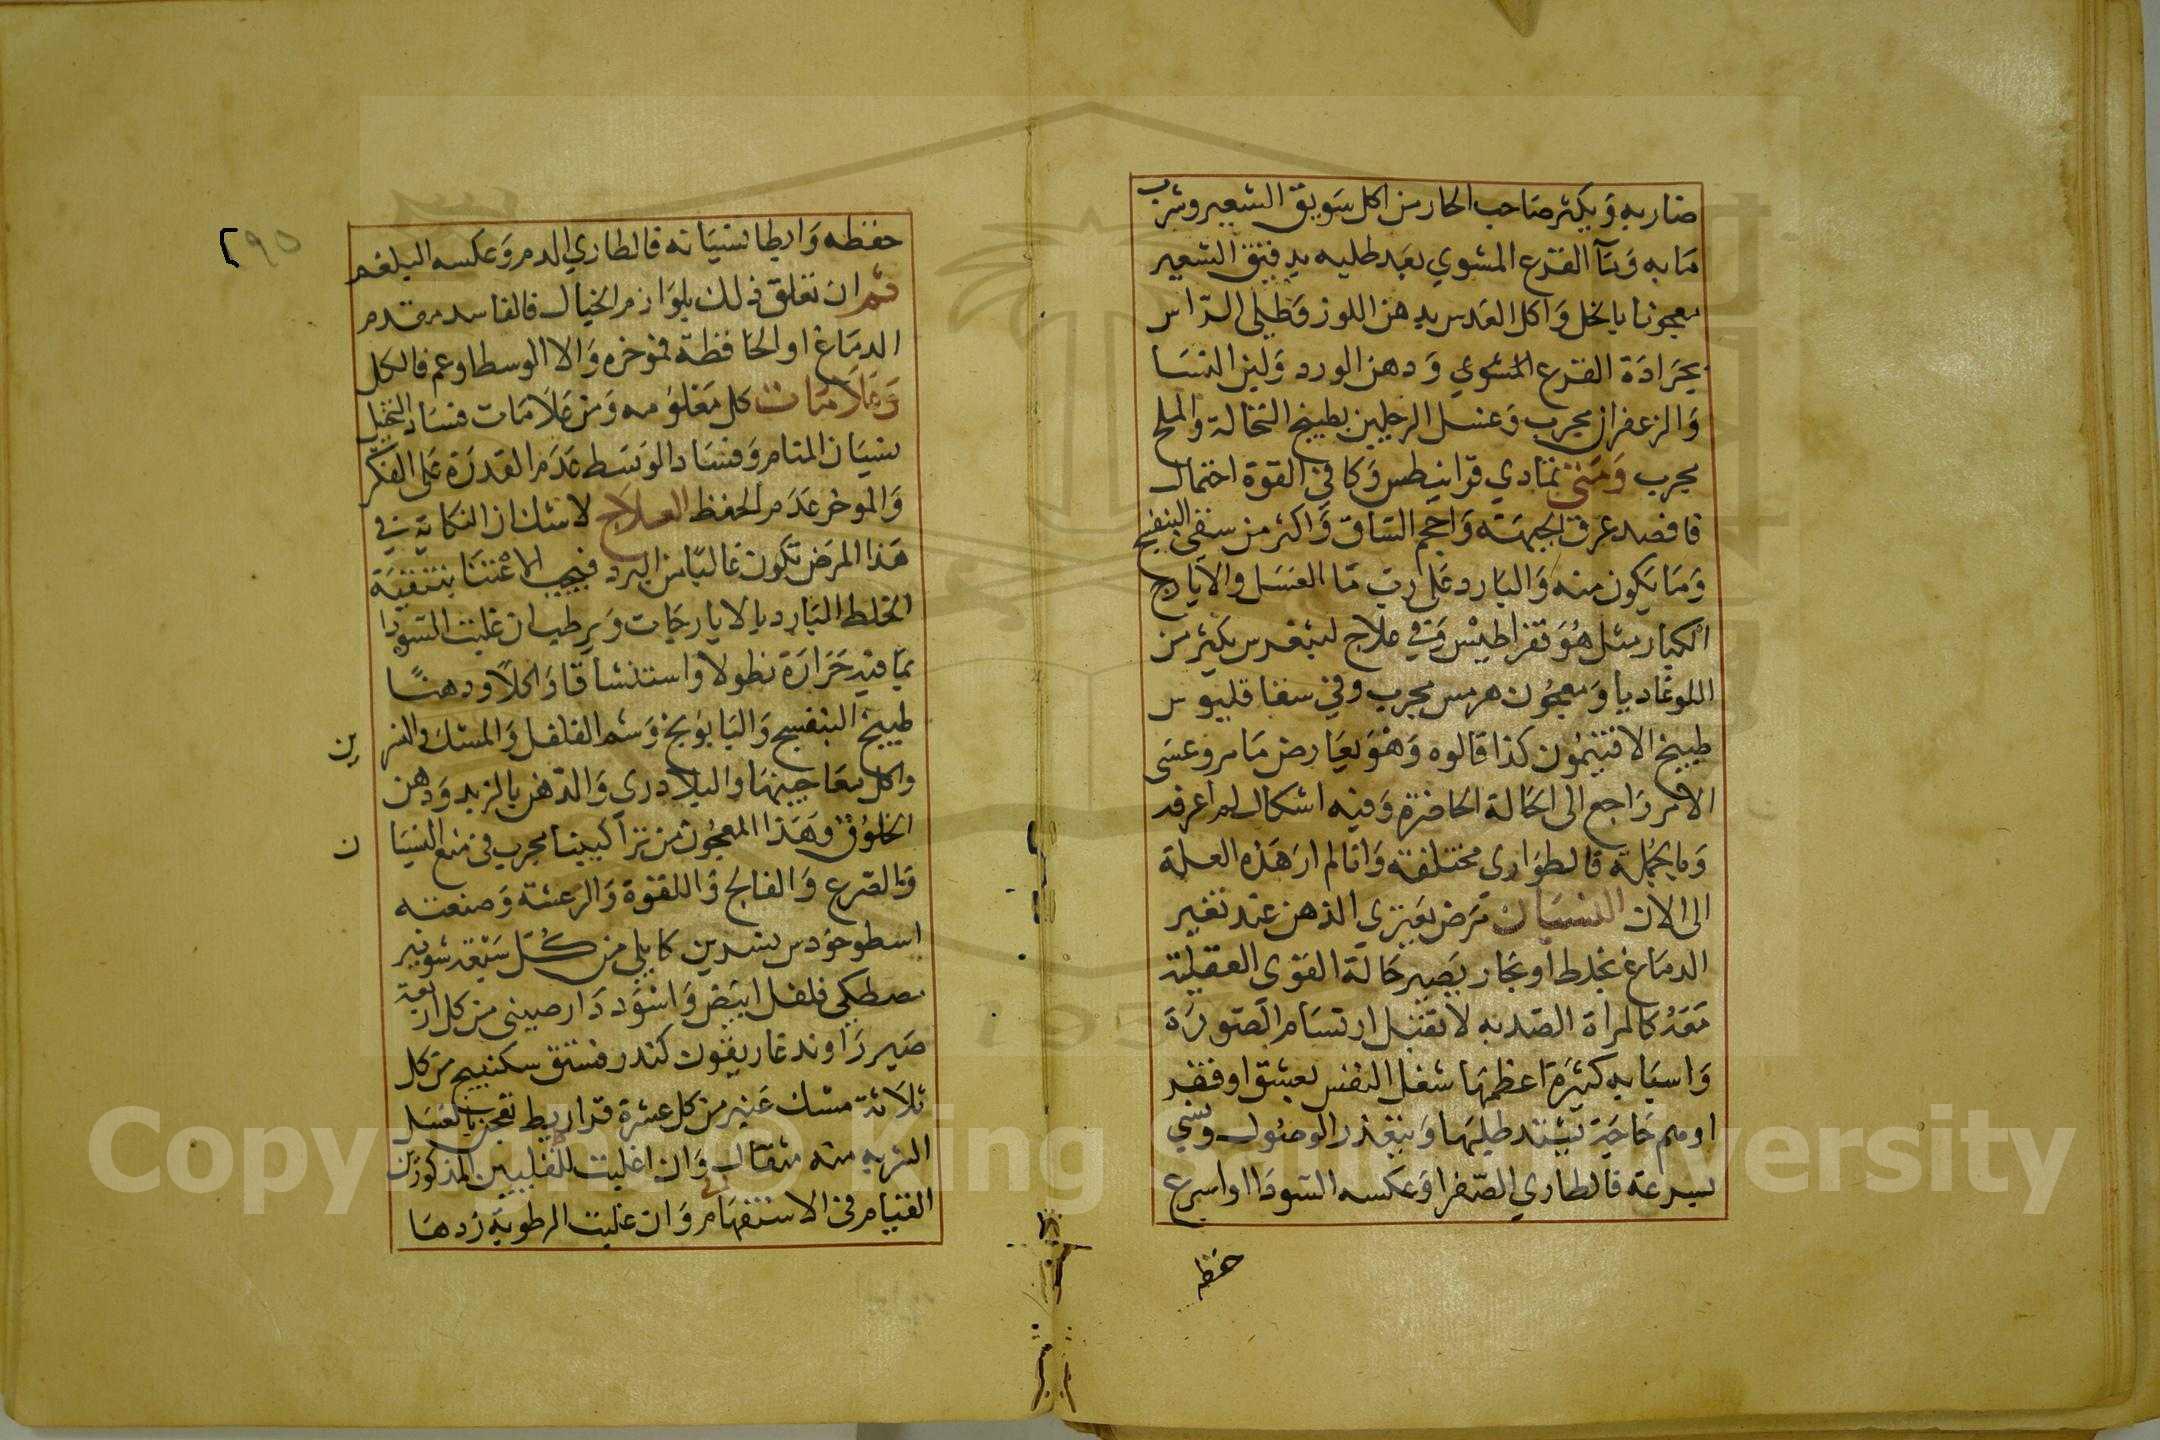 ضاربه ويكثر صاحب الحار من اكل سويق الشعير وشرب
مابه ومآ القرع المشوي بعد طليه بدقيق الشعير
معجونا بالخل واكل العدس بدهن اللوز وطلي الراس
بجرادة القرع المشوي ودهن الورد ولبن النسا
والزعفران مجرب وغسل الرجلين بطبيخ النخالة والملح
مجرب ومتى تمادي قرانيطس وكا في القوة احتمال
فافصد عرق الجبهته واحجم الساق واكثر من سقى البنفسج
وما يكون منه والبارد على رب ما العسل والايارج
الكبار مثل هو قفراطيس وفي علاج ليثغدس يكثر من
اللوغاديا ومعجون هرمس مجرب وفي سفاقليوس
طبيخ الافتيمون كذا قالوه وهو يعارض ما مر وعسى
الامر راجع الى الحالة الحاضرة وفيه اشكال لم اعرفه
وبالجملة فالطوارى مختلفة وانا لم ار هذه العلة
الى الان النسيان مرض يعتري الذهن عند تغير
الدماغ بخلط او بخار يصير حالة القوى العقلية
معه كالمراة الصدبه لا تقبل ارتسام الصورة
واسبابه كثيرة اعظمها شغل النفس بعشق او فقد
او هم حاجة يشتد طلبها ويتعذر الوصول ونسي
بسرعة فالطاري الصفرا وعكسه السودا او اسرع
حفظه
٢٩٥
حفظه وابطا نسيانه فالطاري الدم وعكسه البلغم
ثم ان تعلق ذلك بلوازم الخيال فالفاسد مقدم
الدماغ او الحافظة فموخره والا الوسط او عم فالكل
وعلامات كل معلومه ومن علامات فساد التخيل
نسيان المنام وفساد الوسط عدم القدرة على الفكر
والموخر عدم الحفظ العلاج لا شك ان النكاية في
هذا المرض تكون غالبا من البرد فيجب الاعتنا بتنقية
الخلط البارد بالايارجات ويرطب ان غلبت السودا
بما فيه حرارة نطولا واستنشاقا واكلا ودهنا
طبيخ البنفسج والبابونج وشم الفلفل والمسك والنسر
ين
واكل معاجينها والبلادري والدهن بالزبد ودهن
الخلوق وهذا المعجون من تراكيبنا مجرب في منع النسيا
ن
والصرع والفالج واللقوة والرعشة وصنعته
اسطوخودس سدين كابلي من كل سبعة شونيز
مصطكي فلفل ابيض واسود دارصيني من كل اربعة
صبر راوند غاريقون كندر فستق سكنبيج من كل
ثلاثة مسك عنبر من كل عشرة قراريط تعجن بالعسل
الشربه منه مثقال وان اغلبت المذكورين
القيام في الاستفهام وان غلبت الرطوبة زدها